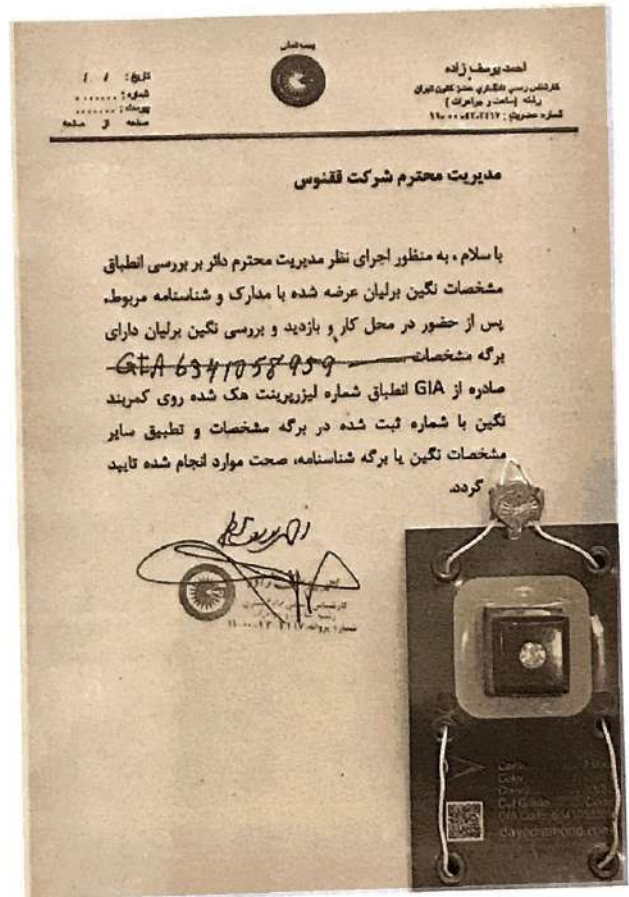 بسمه تعالی
احمد یوسف زاده
کارشناس رسمی دادگستری عضو کانون تهران
رشته (ساعت و جواهرات)
شماره عضویت:
تاریخ: / /
شماره: ........
پیوست: ........
صفحه از صفحه
مدیریت محترم شرکت ققنوس
با سلام، به منظور اجرای نظر مدیریت محترم دائر بر بررسی انطباق
مشخصات نگین برلیان عرضه شده با مدارک و شناسنامه مربوط،
پس از حضور در محل کار و بازدید و بررسی نگین برلیان دارای
برگه مشخصات GIA 6341058959
صادره از GIA انطباق شماره لیزرپرینت هک شده روی کمربند
نگین با شماره ثبت شده در برگه مشخصات و تطبیق سایر
مشخصات نگین با برگه شناسنامه، صحت موارد انجام شده تایید
گردد.
Color
Cut Grade
GIA Code